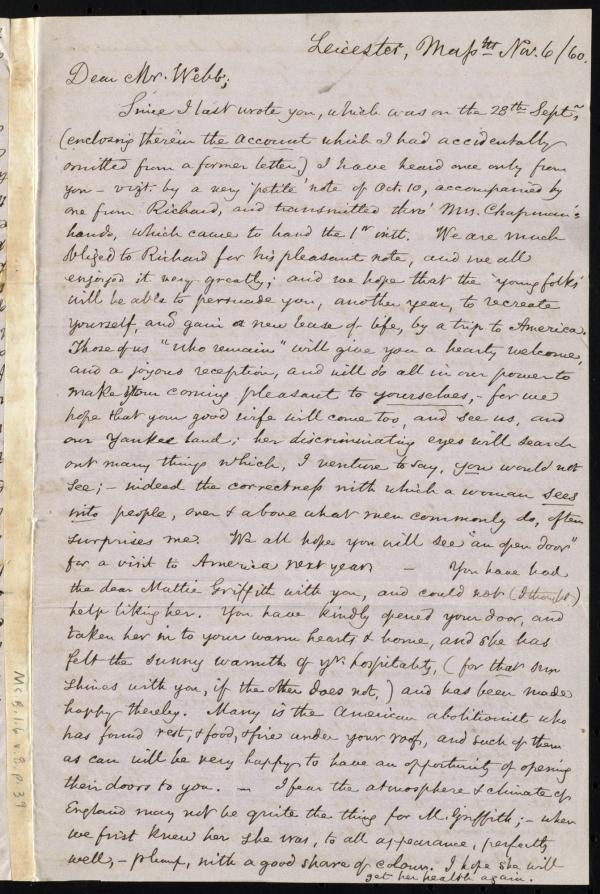 Leicester, Mass^tts Nov. 6/60.
Dear Mr. Webb;
Since I last wrote you, which was on the 28th Septr,
(enclosing therein the account which I had accidentally
omitted from a former letter,) I have heard once only from
you – vizt. by a very 'petite' note of Oct. 10, accompanied by
one from Richard, and transmitted thro' Mrs. Chapman's
hands, which came to hand the 1st inst. We are much
obliged to Richard for his pleasant note, and we all
enjoyed it very greatly; and we hope that the 'young folks'
will be able to persuade you, another year, to recreate
yourself, and gain a new lease of life, by a trip to America.
Those of us "who remain" will give you a hearty welcome,
and a joyous reception, and will do all in our power to
make your coming pleasant to yourselves, – for we
hope that your good wife will come too, and see us, and
our Yankee land; her discriminating eyes will search
out many things which, I venture to say, you would not
see; – indeed the correctness with which a woman sees
into people, over & above what men commonly do, often
surprises me. We all hope you will see "an open door"
for a visit to America next year. – You have had
the dear Mattie Griffith with you, and could not (I thought)
help liking her. You have kindly opened your door, and
taken her in to your warm hearts & home, and she has
felt the sunny warmth of yr. hospitality, (for that sun
shines with you, if the other does not,) and has been made
happy thereby. Many is the American abolitionist who
has found rest, & food, & fire under your roof, and such of them
as can will be very happy to have an opportunity of opening
their doors to you. – I fear the atmosphere & climate of
England may not be quite the thing for M. Griffith; – when
we first knew her she was, to all appearance, perfectly
well, – plump, with a good share of colour. I hope she will
get her health again.
Ms. B. 1.6 v. 8, p. 39